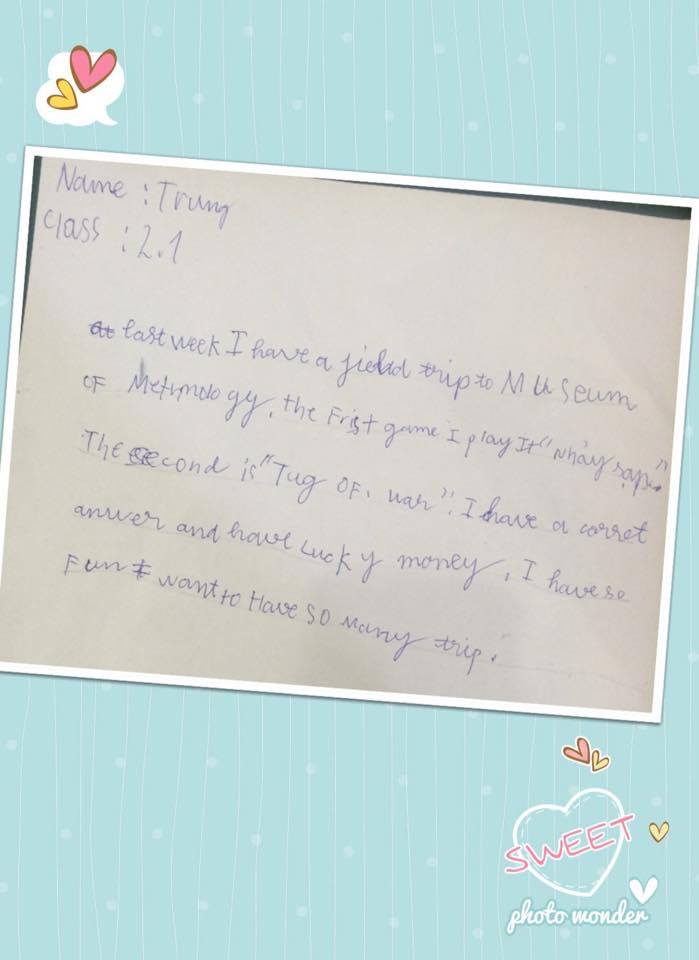 Name : Trung
Class : 2.1
last week I have a jield trip to Museum
OF Metnmology, the Frist game I play It "Nhảy sạp".
The second is "Tug OF. war". I have a corret
anwer and have Lucky money, I have so
Fun I want to Have so many trip.
SWEET
photo wonder